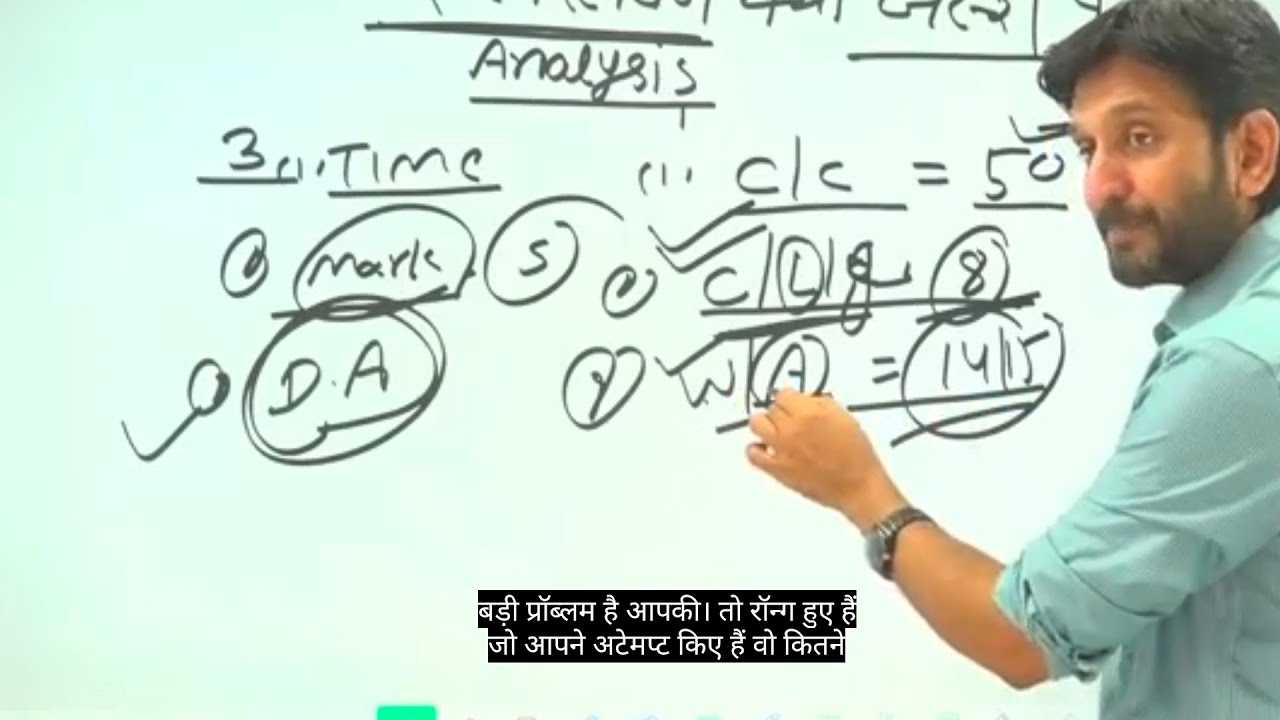 Analysis
3 (1). TIME (1). C/C = 50
Mark. 5 C/L/ 8
D.A W/A = 14/15
बड़ी प्रॉब्लम है आपकी। तो रॉन्ग हुए हैं
जो आपने अटेमप्ट किए हैं वो कितने